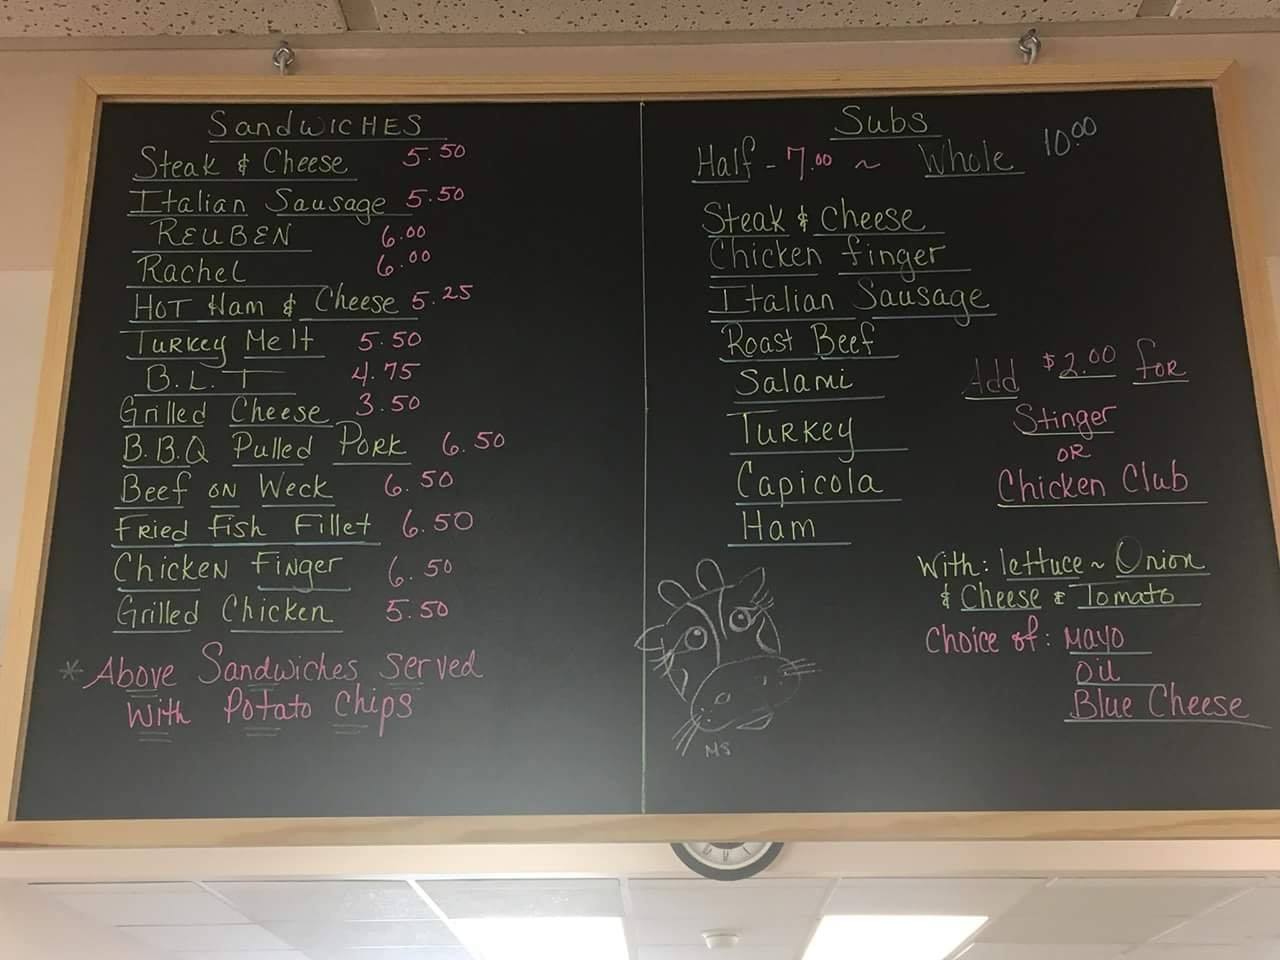 SandWICHES
Steak & Cheese 5.50
Italian Sausage 5.50
REUBEN 6.00
Rachel 6.00
HOT Ham & Cheese 5.25
TURKEY Melt 5.50
B.L.T 4.75
Grilled Cheese 3.50
B.B.Q Pulled PORK 6.50
Beef ON Weck 6.50
FRied Fish Fillet 6.50
ChickEN Finger 6.50
Grilled Chicken 5.50
* Above Sandwiches Served
With Potato Chips
Subs
Half - 7.00 ~ Whole 10.00
Steak & Cheese
Chicken finger
Italian Sausage
Roast Beef
Salami
TURKEY
Capicola
Ham
Add $2.00 foR
Stinger
OR
Chicken Club
With: lettuce ~ Onion
& Cheese & Tomato
Choice of: Mayo
Oil
Blue Cheese
MS